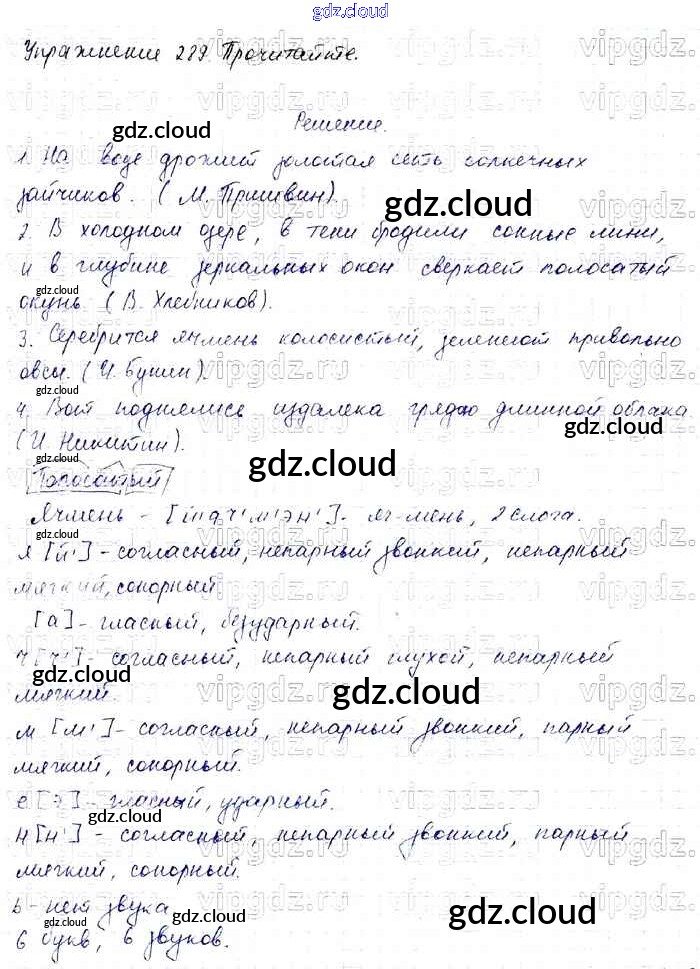 gdz.cloud
Упражнение 289. Прочитайте.
Решение.
1. На воде дрожит золотая сеть солнечных
зайчиков. (М. Пришвин).
2. В холодном озере, в тени бродили сонные лини,
и в глубине зеркальных окон сверкает полосатый
окунь. (В. Хлебников).
3. Серебрится ячмень колосистый, зеленеют привольно
овсы. (И. Бунин).
4. Вот поднялись издалека грядою длинной облака
(И. Никитин).
Полосатый
Ячмень - [ й' а ч' м' э н' ] - яч-мень, 2 слога.
я [й'] - согласный, непарный звонкий, непарный
мягкий, сонорный
[а] - гласный, безударный.
ч [ч'] - согласный, непарный глухой, непарный
мягкий.
м [м'] - согласный, непарный звонкий, парный
мягкий, сонорный.
е [э] - гласный, ударный.
н [н'] - согласный, непарный звонкий, парный
мягкий, сонорный.
ь - нет звука
6 букв, 6 звуков.